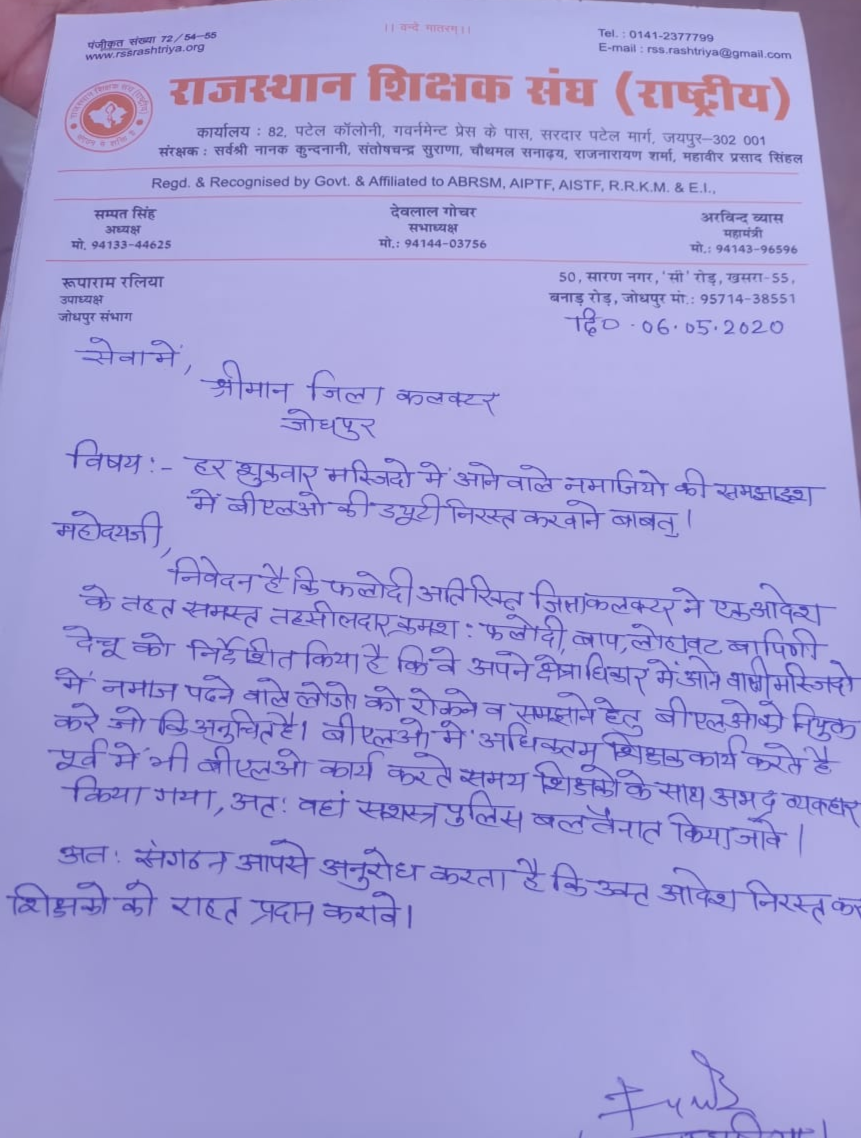 ।। वन्दे मातरम्।।
पंजीकृत संख्या 72/54-55
www.rssrashtriya.org
Tel. : 0141-2377799
E-mail : rss.rashtriya@gmail.com
राजस्थान शिक्षक संघ (राष्ट्रीय)
कार्यालय : 82, पटेल कॉलोनी, गवर्नमेन्ट प्रेस के पास, सरदार पटेल मार्ग, जयपुर-302 001
संरक्षक : सर्वश्री नानक कुन्दनानी, संतोषचन्द्र सुराणा, चौथमल सनाढ्य, राजनारायण शर्मा, महावीर प्रसाद सिंहल
Regd. & Recognised by Govt. & Affiliated to ABRSM, AIPTF, AISTF, R.R.K.M. & E.I.,
सम्पत सिंह
अध्यक्ष
मो. 94133-44625
देवलाल गोचर
सभाध्यक्ष
मो.: 94144-03756
अरविन्द व्यास
महामंत्री
मो.: 94143-96596
रूपाराम रलिया
उपाध्यक्ष
जोधपुर संभाग
50, सारण नगर, 'सी' रोड़, खसरा-55,
बनाड़ रोड़, जोधपुर मो.: 95714-38551
दि० .06.05.2020
सेवा में,
श्रीमान जिला कलक्टर
जोधपुर
विषय :- हर शुक्रवार मस्जिदो में आने वाले नमाजियो की समझाइश
में बीएलओ की ड्यूटी निरस्त करवाने बाबत्।
महोदयजी,
निवेदन है कि फलोदी अतिरिक्त जिलाकलक्टर ने एक आदेश
के तहत समस्त तहसीलदार क्रमश: फलोदी, बाप, लोहावट बापिणी
देचू को निर्देशित किया है कि वे अपने क्षेत्राधिकार में आने वाली मस्जिदो
में नमाज पढने वाले लोगो को रोकने व समझाने हेतु बीएलओको नियुक्त
करे जो कि अनुचित है। बीएलओ में अधिकतम शिक्षक कार्य करते है
पूर्व में भी बीएलओ कार्य करते समय शिक्षको के साथ अभद्र व्यवहार
किया गया, अत: वहां सशस्त्र पुलिस बल तैनात किया जावे।
अत: संगठन आपसे अनुरोध करता है कि उक्त आदेश निरस्त कर
शिक्षको को राहत प्रदान करावे।